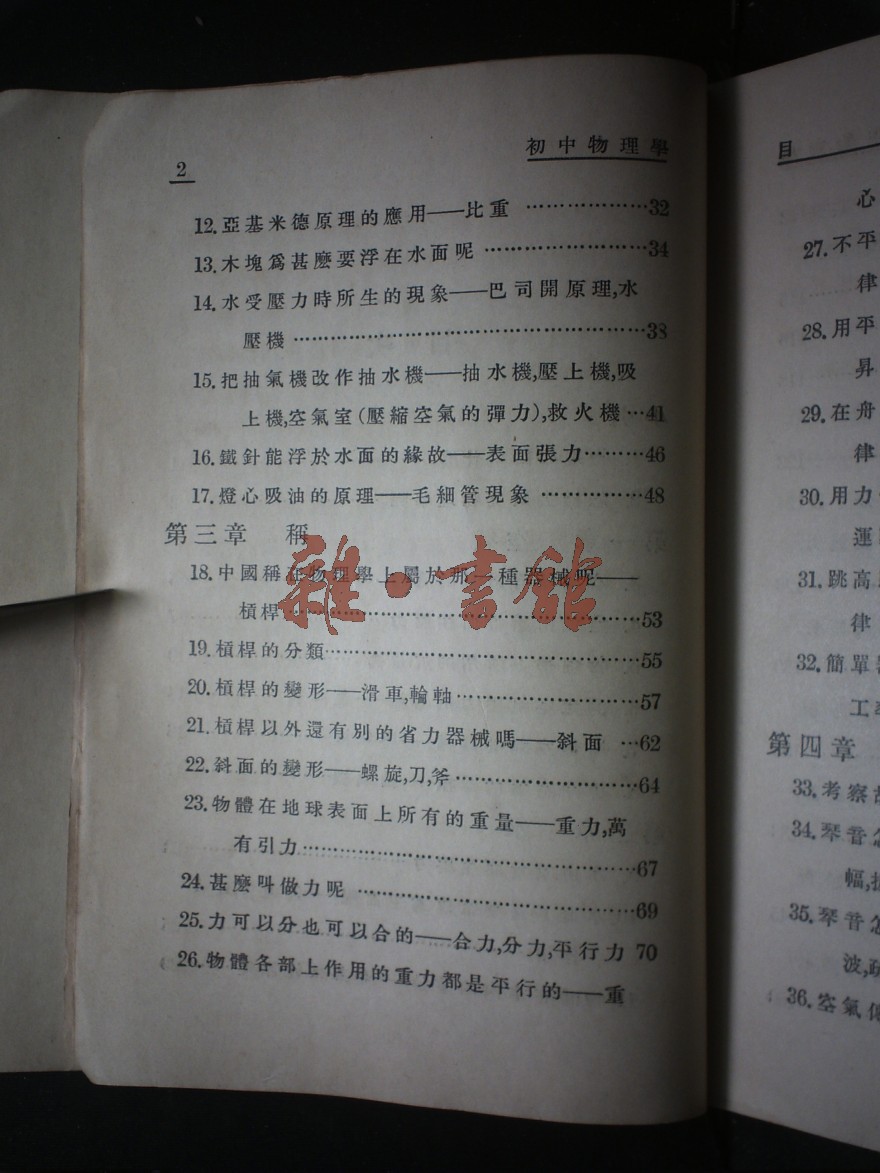 2
初中物理學
12.亞基米德原理的應用——比重 ………………32
13.木塊爲甚麽要浮在水面呢 …………………34
14.水受壓力時所生的現象——巴司開原理,水
壓機 ……………………………………………38
15.把抽氣機改作抽水機——抽水機,壓上機,吸
上機,空氣室(壓縮空氣的彈力),救火機 …41
16.鐵針能浮於水面的緣故——表面張力………46
17.燈心吸油的原理——毛細管現象 ……………48
第三章 稱
18.中國稱在物理學上屬於那一種器械呢——
槓桿 ……………………………………………53
19.槓桿的分類………………………………………55
20.槓桿的變形——滑車,輪軸………………………57
21.槓桿以外還有別的省力器械嗎——斜面 …62
22.斜面的變形——螺旋,刀,斧………………………64
23.物體在地球表面上所有的重量——重力,萬
有引力……………………………………………67
24.甚麽叫做力呢 ……………………………………69
25.力可以分也可以合的——合力,分力,平行力 70
26.物體各部上作用的重力都是平行的——重
雜·書館
目
心
27.不平
律
28.用平
昇
29.在舟
律
30.用力
運
31.跳高
律
32.簡單
工率
第四章
33.考察
34.琴音怎
幅,
35.琴音怎
波,
36.空氣傳